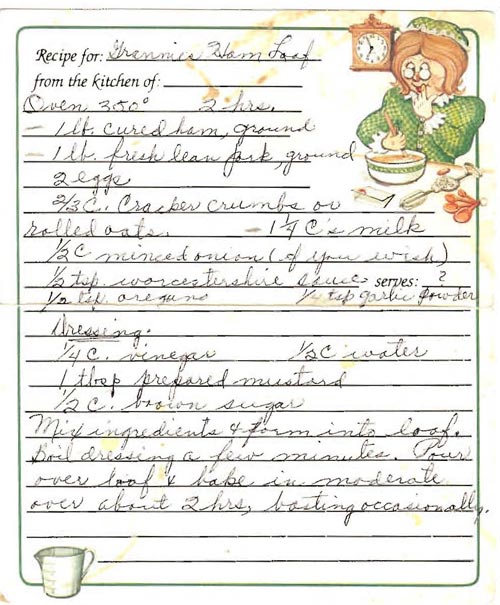 Recipe for: Grannie's Ham Loaf
from the kitchen of:
Oven 350° 2 hrs.
- 1 lb. cured ham, ground
- 1 lb. fresh lean pork, ground
2 eggs
2/3 C. Cracker crumbs or
rolled oats. - 1 1/4 C's milk
1/2 C minced onion (if you wish)
1/2 tsp. worcestershire sauce serves: ?
1/2 tsp. oregano 1/4 tsp garlic powder
Dressing:
1/4 C. vinegar 1/2 C water
1 tbsp prepared mustard
1/2 C. brown sugar
Mix ingredients & form into loaf.
Boil dressing a few minutes. Pour
over loaf & bake in moderate
over about 2 hrs, basting occasionally.